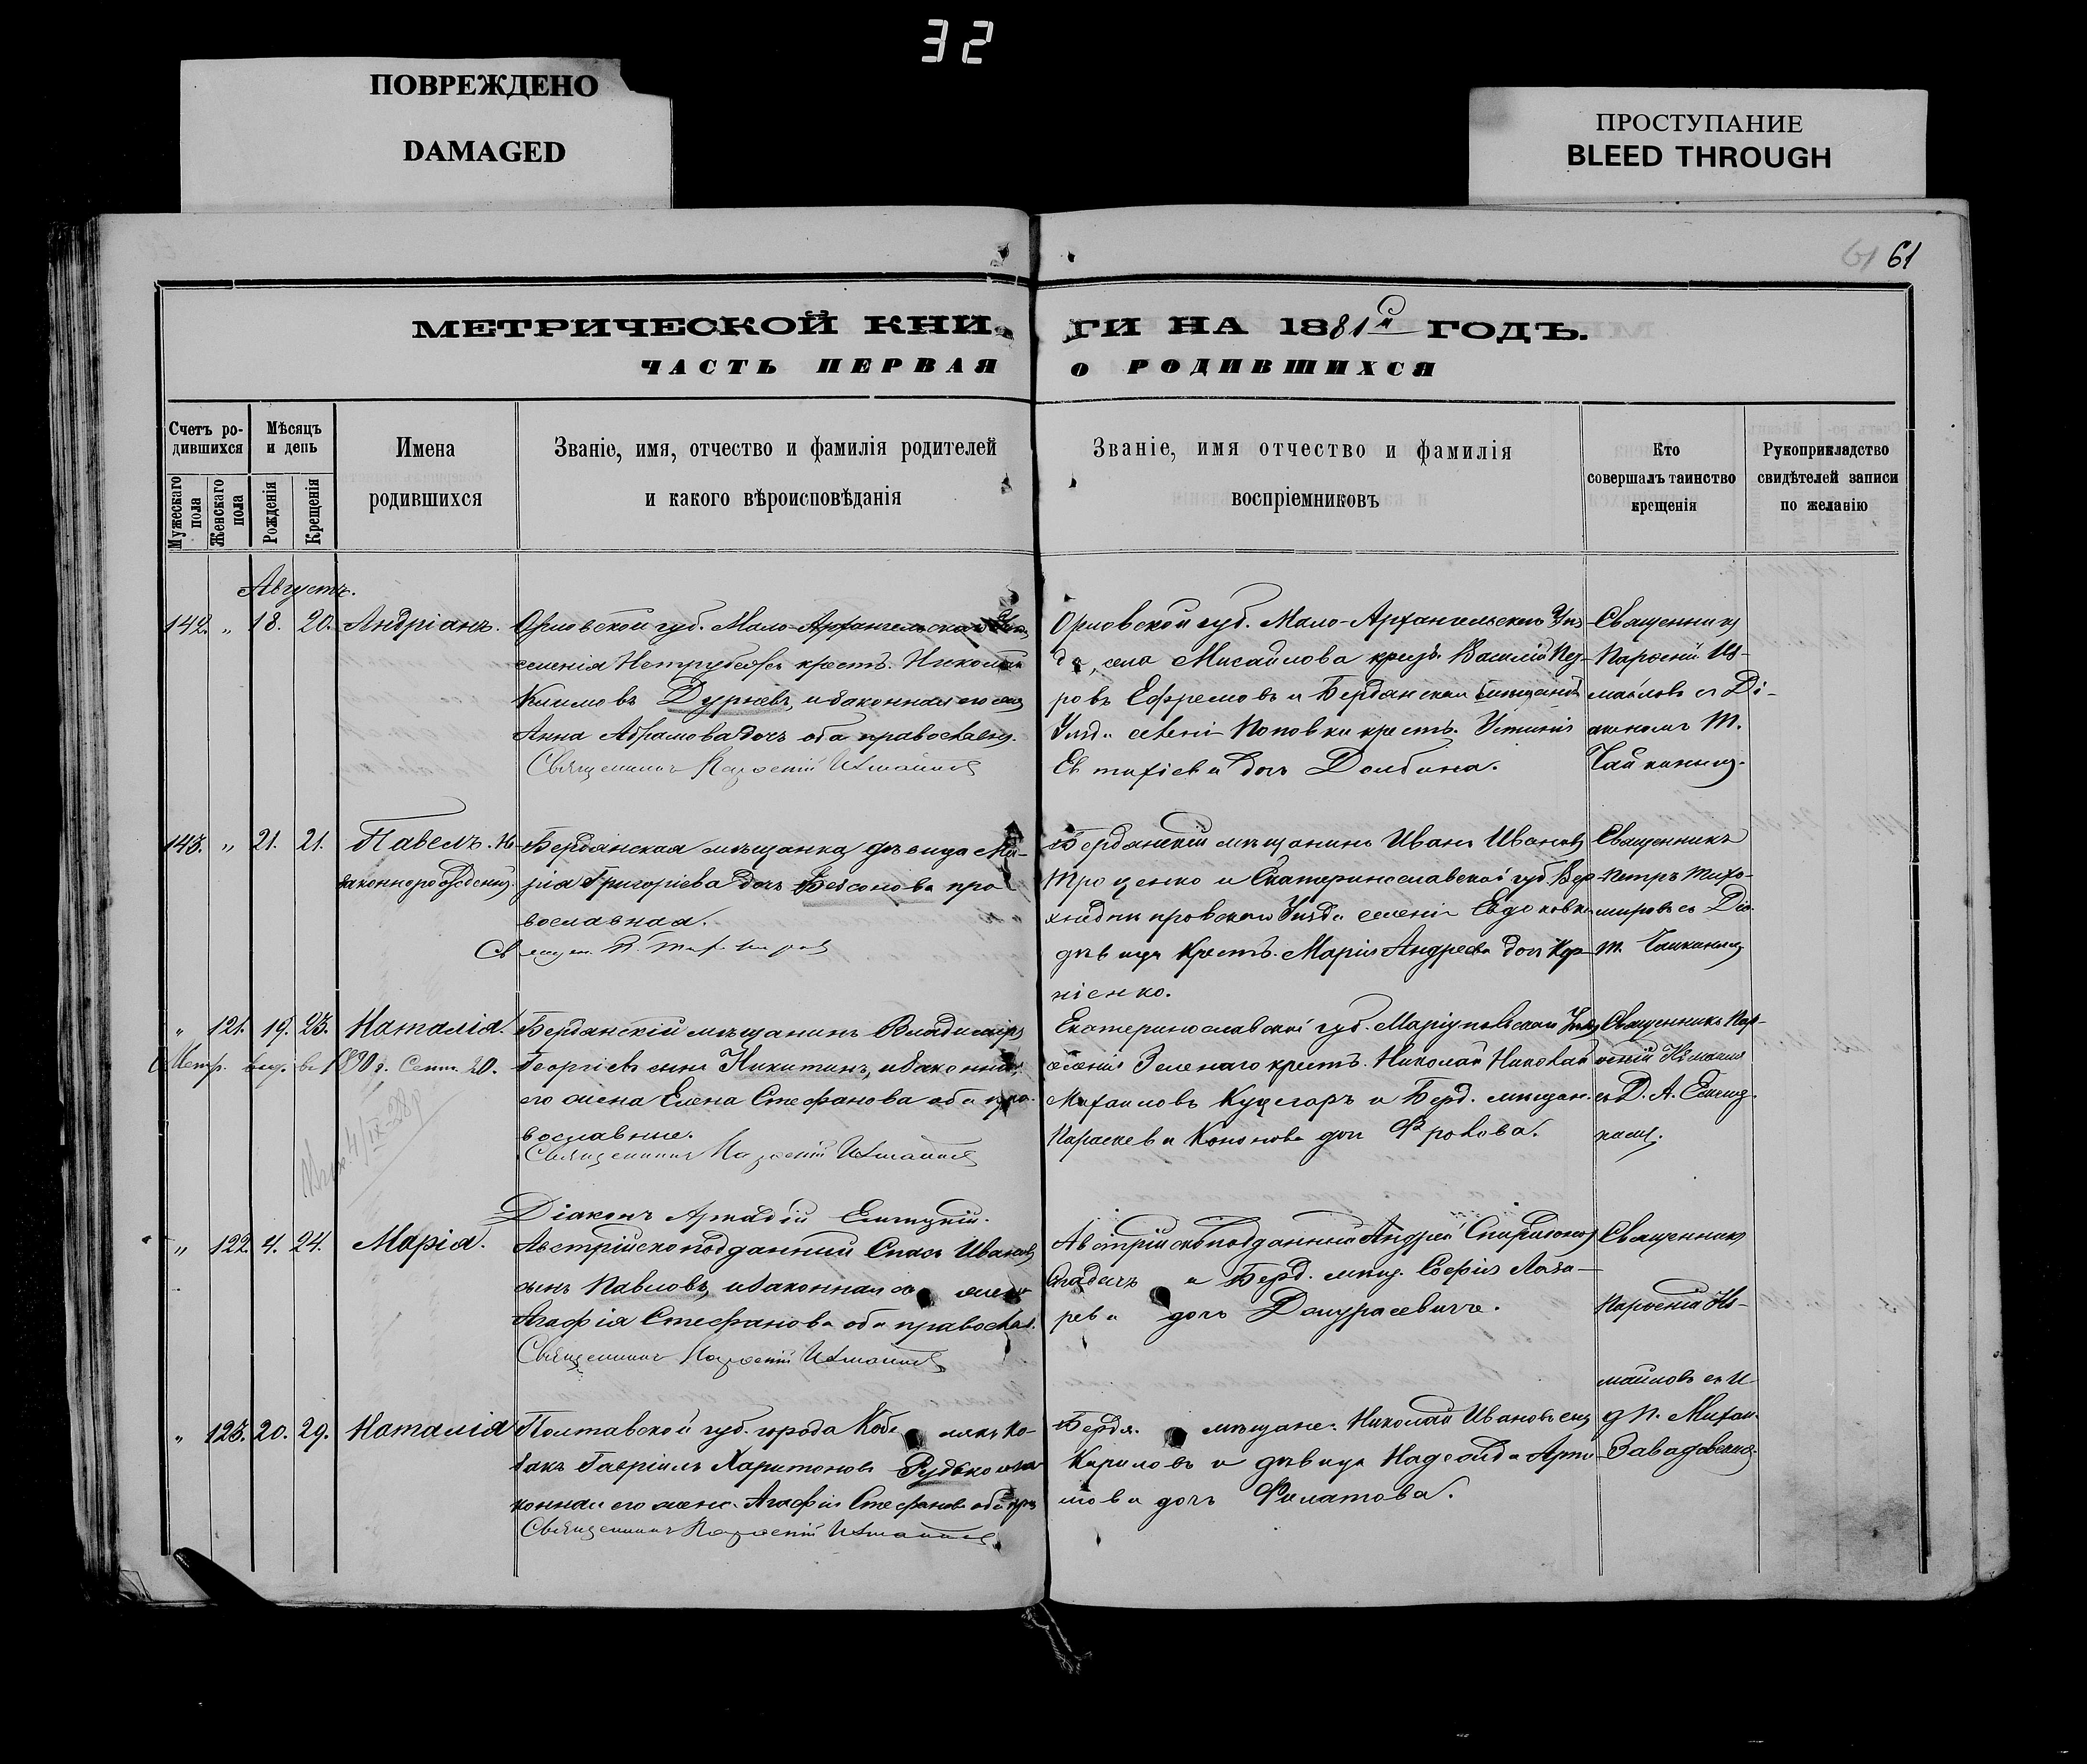 32
ПОВРЕЖДЕНО
DAMAGED
ПРОСТУПАНИЕ
BLEED THROUGH
61 61
МЕТРИЧЕСКОЙ КНИ
ГИ НА 1881й ГОДЪ.
ЧАСТЬ ПЕРВАЯ
О РОДИВШИХСЯ
Счетъ ро-
дившихся
Мужескаго пола
Женскаго пола
Мѣсяцъ
и день
Рожденія
Крещенія
Имена
родившихся
Званіе, имя, отчество и фамилія родителей
и какого вѣроисповѣданія
Званіе, имя отчество и фамилія
воспріемниковъ
Кто
совершалъ таинство
крещенія
Рукоприкладство
свидѣтелей записи
по желанію
Августъ.
142. " 18. 20. Андріанъ.
Орловской губ. Мало-Архангельскаго
селенія крест. Николай
Климовъ Дурневъ, и законная его
Анна Абрамова дочь оба православн.
Священникъ Парѳеній Измаиловъ
Орловской губ. Мало-Архангельскаго Уѣз-
да, села Мисайлова крест. Василій Пет-
ровъ Ефремовъ и Бердянскаго
Уѣзда селенія Поповки крест. Устинія
Евтихіева дочь Долбина.
Священникъ
Парѳеній Из-
маиловъ съ Ді-
акономъ Т.
Чайкинымъ.
143. " 21. 21. Павелъ. Не-
законнорожденный.
Бердянская мѣщанка дѣвица Ма-
рія Григоріева дочь Безсонова пра
вославная.
Священ. П. Тихомировъ
Бердянскій мѣщанинъ Иванъ Ивановъ
Троценко и Екатеринославской губ. Вер-
хнеднѣпровскаго Уѣзда селенія Евдоковки
дѣвица крест. Марія Андреева дочь Кор-
ніенко.
Священникъ
Петръ Тихо-
мировъ съ Діа.
Т. Чайкинымъ
" 121. 19. 23. Наталія.
Метр. выд. въ Сент. 20.
Бердянскій мѣщанинъ Владиміръ
Георгіевъ сынъ Никитинъ, и законная
его жена Елена Стефанова оба пра-
вославные.
Священникъ Парѳеній Измаиловъ
Діаконъ Аркадій
Екатеринославской губ. Маріупольскаго Уѣзд.
селенія Зеленаго крест. Николай Николай
Михаиловъ и Берд. мѣщан.
Параскева Кононова дочь Фролова.
Священникъ Пар-
ѳеній Измаиловъ
съ Д. А.
" 122. 4. 24. Марія.
Австрійскоподданный Спасъ Ивановъ
сынъ Павловъ, и законная его жена
Агафія Стефанова оба православ.
Священникъ Парѳеній Измаиловъ
Австрійскоподданный Андрей Спиридоновъ
и Берд. мѣщ. Софія Лаза-
рева дочь
Священникъ
Парѳеній Из-
маиловъ съ И
д п. Михаи.
Завадовскимъ
" 123. 20. 29. Наталія
Полтавской губ. города Кобелякъ ко-
закъ Гавріилъ Харитоновъ Рудько и за
конная его жена Агафія Стефанова оба пра
Священникъ Парѳеній Измаиловъ
Бердя. мѣщане: Николай Ивановъ сынъ
Кириловъ и дѣвица Надежда Арте
мова дочь Филатова.